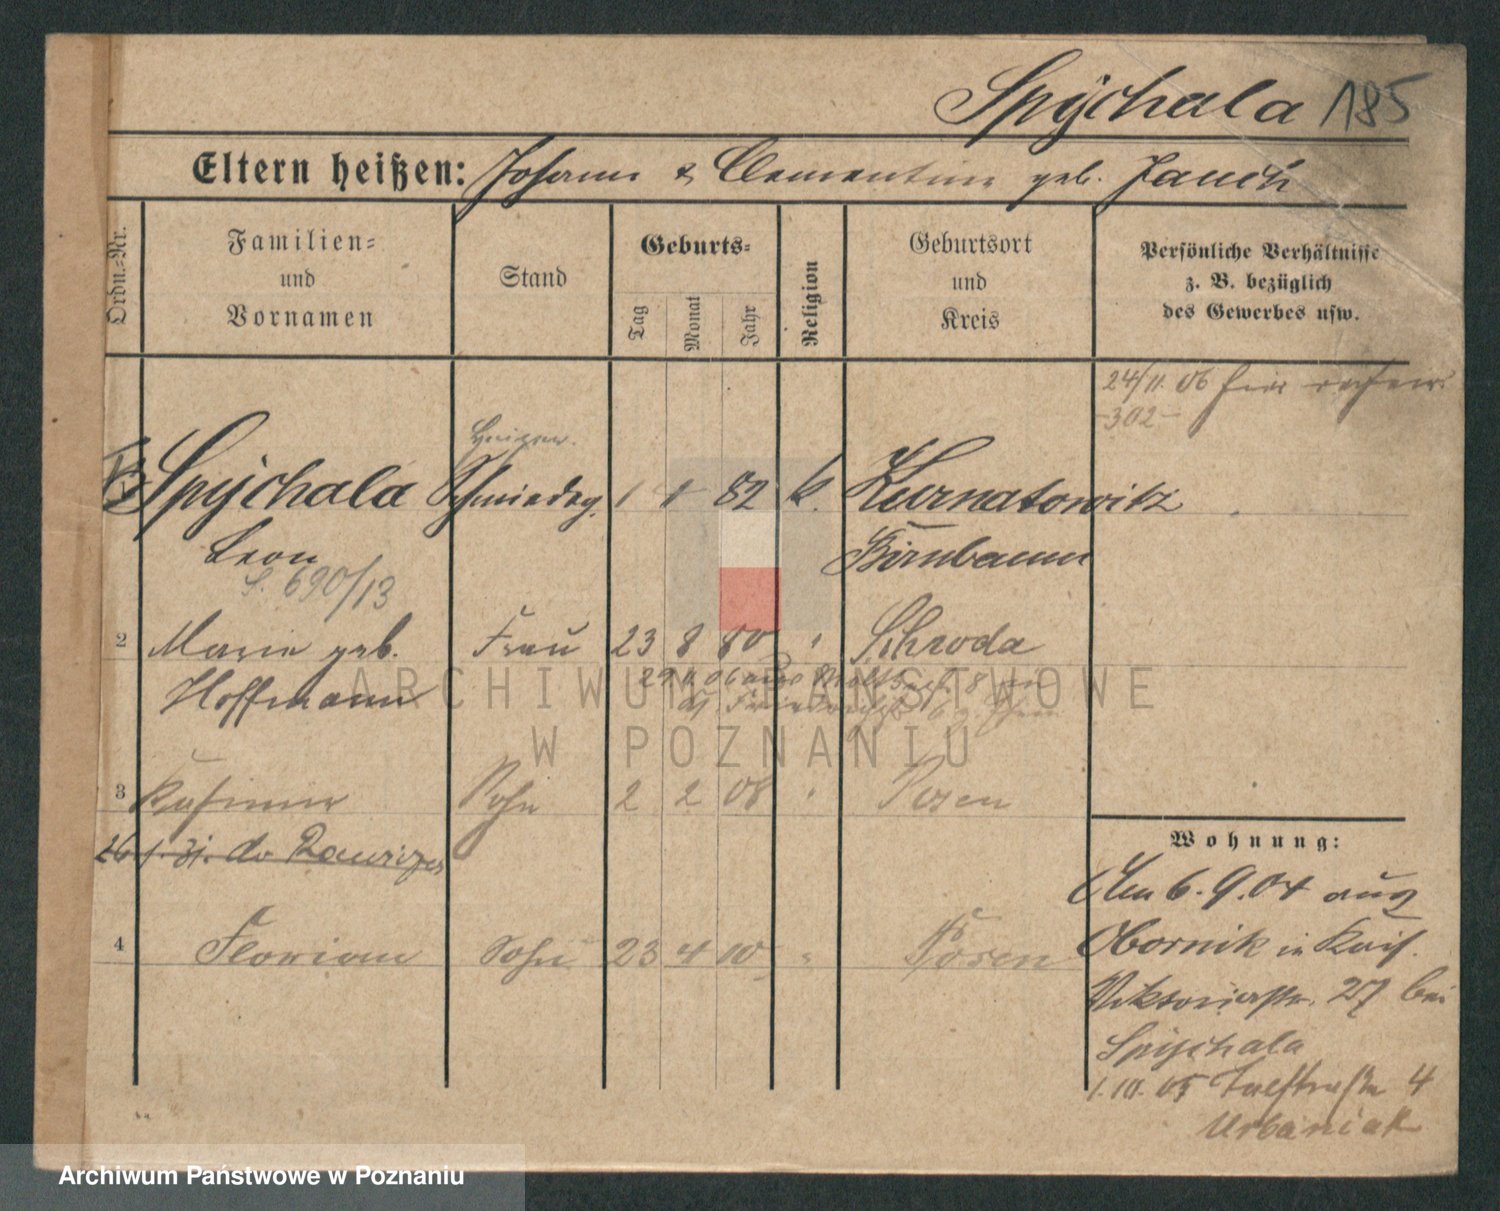 Spÿchala 185
Eltern heißen: Johann & Clementine geb.
Ordn.-Nr.
Familien-
und
Vornamen
Stand
Geburts-
Tag
Monat
Jahr
Religion
Geburtsort
und
Kreis
Persönliche Verhältnisse
z. B. bezüglich
des Gewerbes usw.
24/11. 06
-302-
Spÿchala 1 1 82 k. Kurnatowitz
Leon Birnbaum
690/13
2 Marie geb. Frau 23 8 80 " Schroda
Hoffmann
3 Kasimir Sohn 2 2 08 " Posen
4 Florian Sohn 23 4 10 " Posen
Wohnung:
Am 6. 9. 04 aus
Obornik in Kais.
Viktoriastr. 27 bei
Spijchala
1. 10. 05 4
Urbaniak
ARCHIWUM PAŃSTWOWE
W POZNANIU
Archiwum Państwowe w Poznaniu